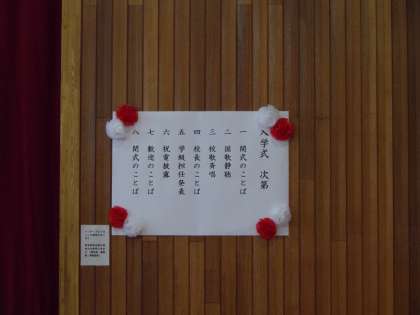 入学式 次第
一 開式のことば
二 国歌静聴
三 校歌斉唱
四 校長のことば
五 学級担任発表
六 祝電披露
七 歓迎のことば
八 閉式のことば